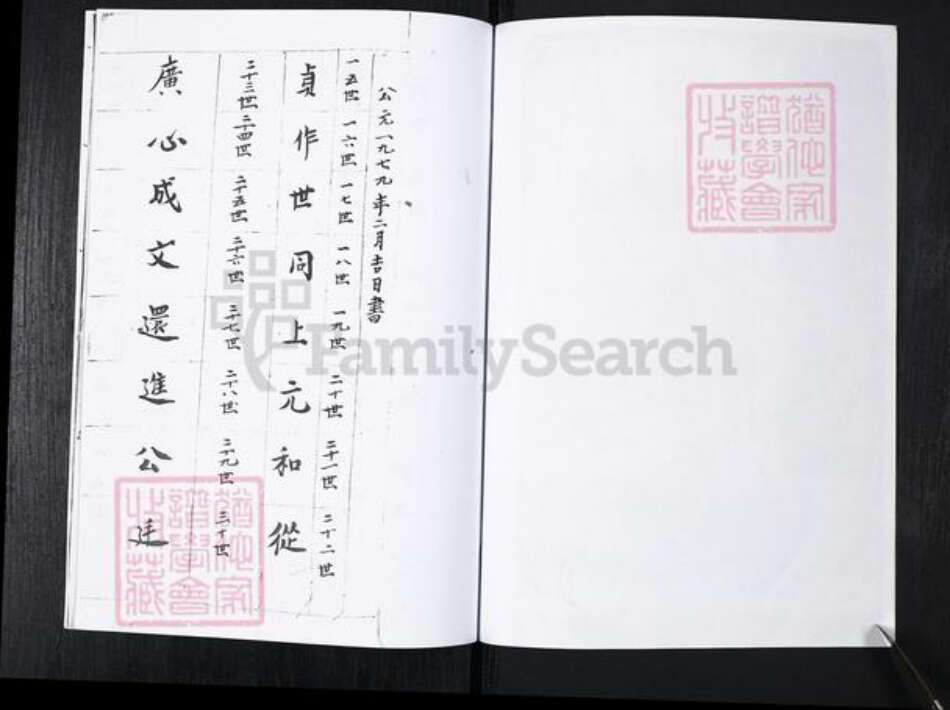 公元一九七九年二月吉日書
一五世 一六世 一七世 一八世 一九世 二十世 二十一世 二十二世
貞作世同上元和從
二十三世 二十四世 二十五世 二十六世 二十七世 二十八世 二十九世 三十世
廣心成文還進公廷
FamilySearch
譜學會
收藏
譜學會
收藏